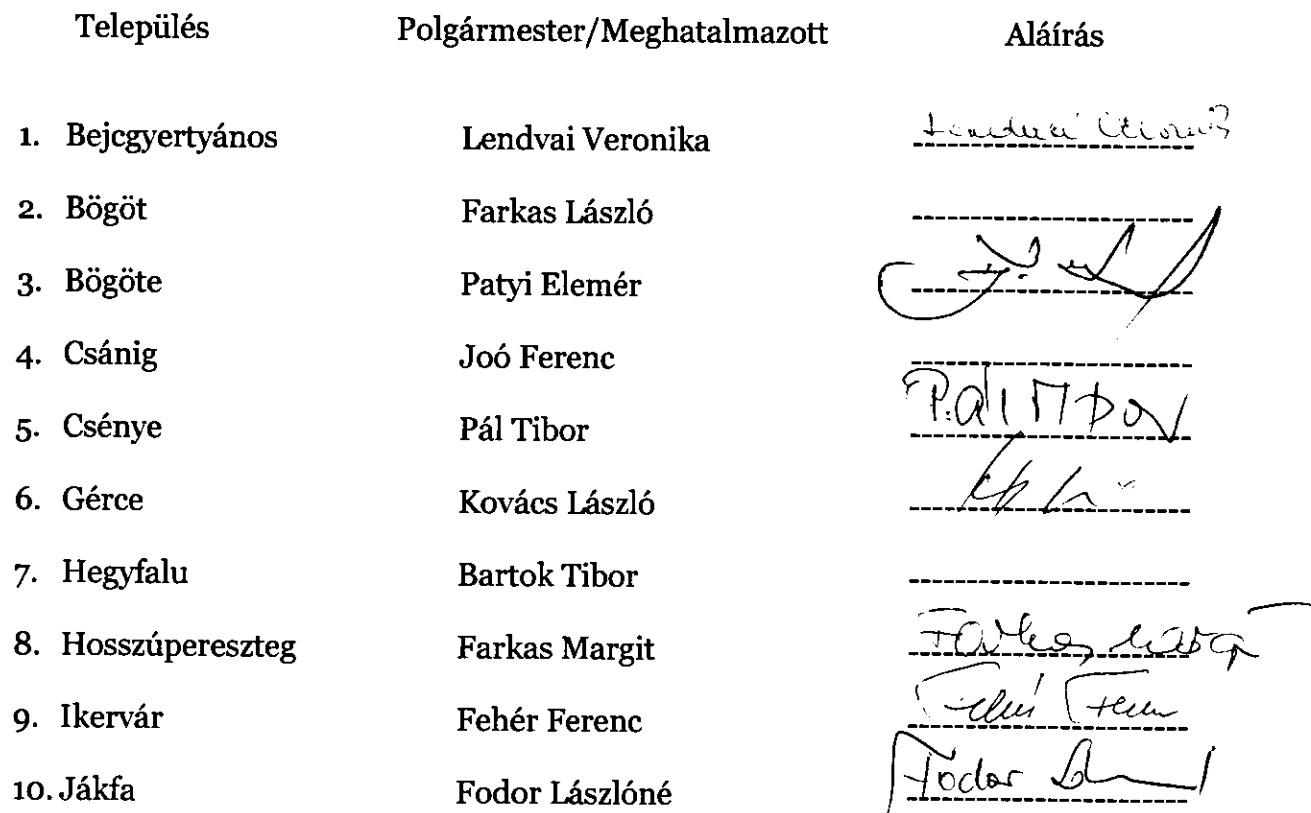 Település Polgármester/Meghatalmazott Aláírás
1. Bejcgyertyános Lendvai Veronika
2. Bögöt Farkas László
3. Bögöte Patyi Elemér
4. Csánig Joó Ferenc
5. Csénye Pál Tibor
6. Gérce Kovács László
7. Hegyfalu Bartok Tibor
8. Hosszúpereszteg Farkas Margit Farkas
9. Ikervár Fehér Ferenc
10. Jákfa Fodor Lászlóné Fodor